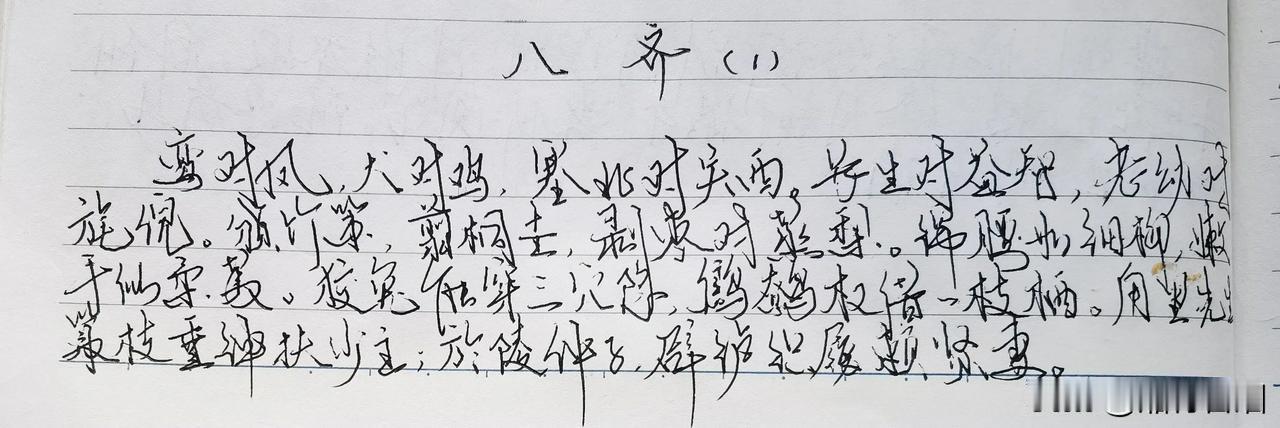 八齐（1）
鸾对凤，犬对鸡，塞北对关西。长生对益智，老幼对
旄倪。颁竹策，剪桐圭，剥枣对蒸梨。绵腰如细柳，嫩
手似柔荑。狡兔能穿三穴隐，鹪鹩权借一枝栖。角里先生
策枝垂绅扶少主；於陵仲子，辟纑织屦赖贤妻。